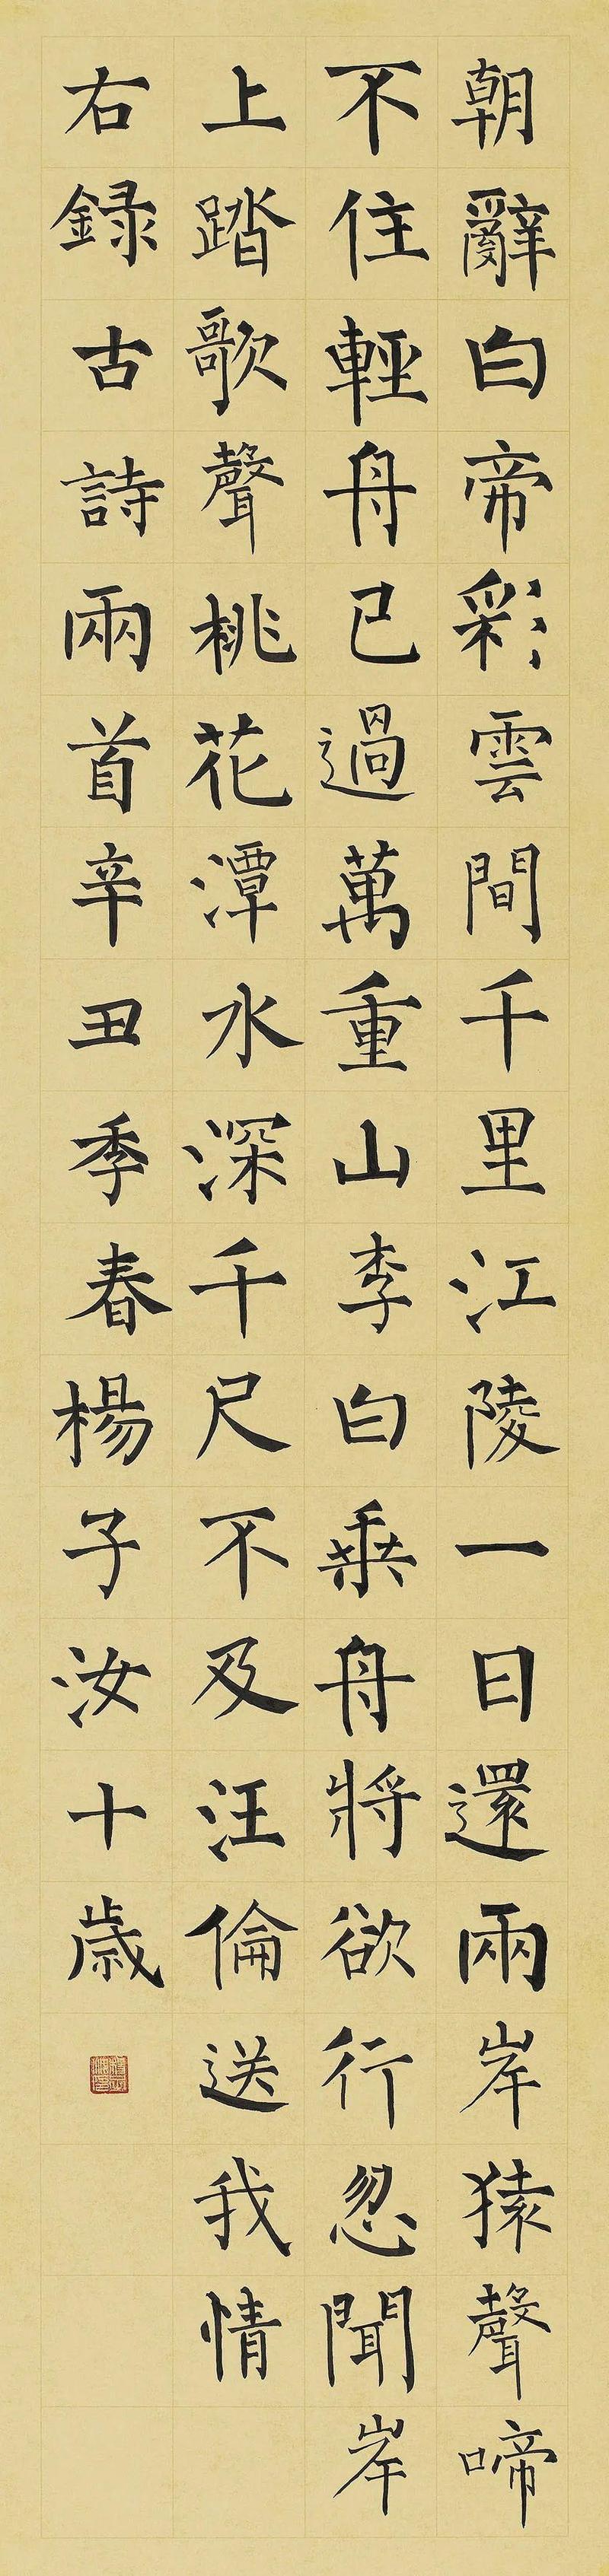 朝辭白帝彩雲間千里江陵一日還兩岸猿聲啼
不住輕舟已過萬重山李白乘舟將欲行忽聞岸
上踏歌聲桃花潭水深千尺不及汪倫送我情
右録古詩兩首辛丑季春楊子汝十歲